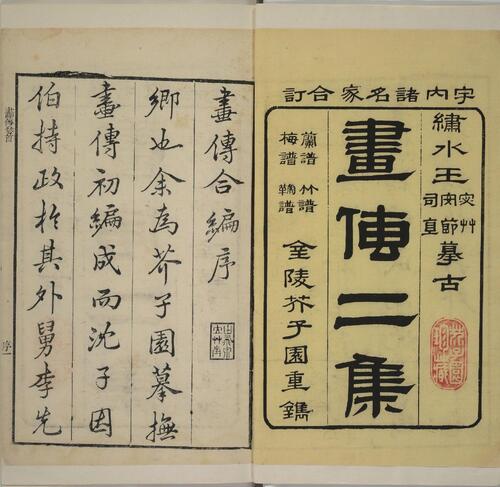 宇內諸名家合訂
繡水王宓草安節司直摹古
畫傳二集
蘭譜 竹譜
梅譜 菊譜
金陵芥子園重鐫
畫傳合編序
鄉也余為芥子園摹撫
畫傳初編成而沈子因
伯持政於其外舅李先
畫傳合編
序一